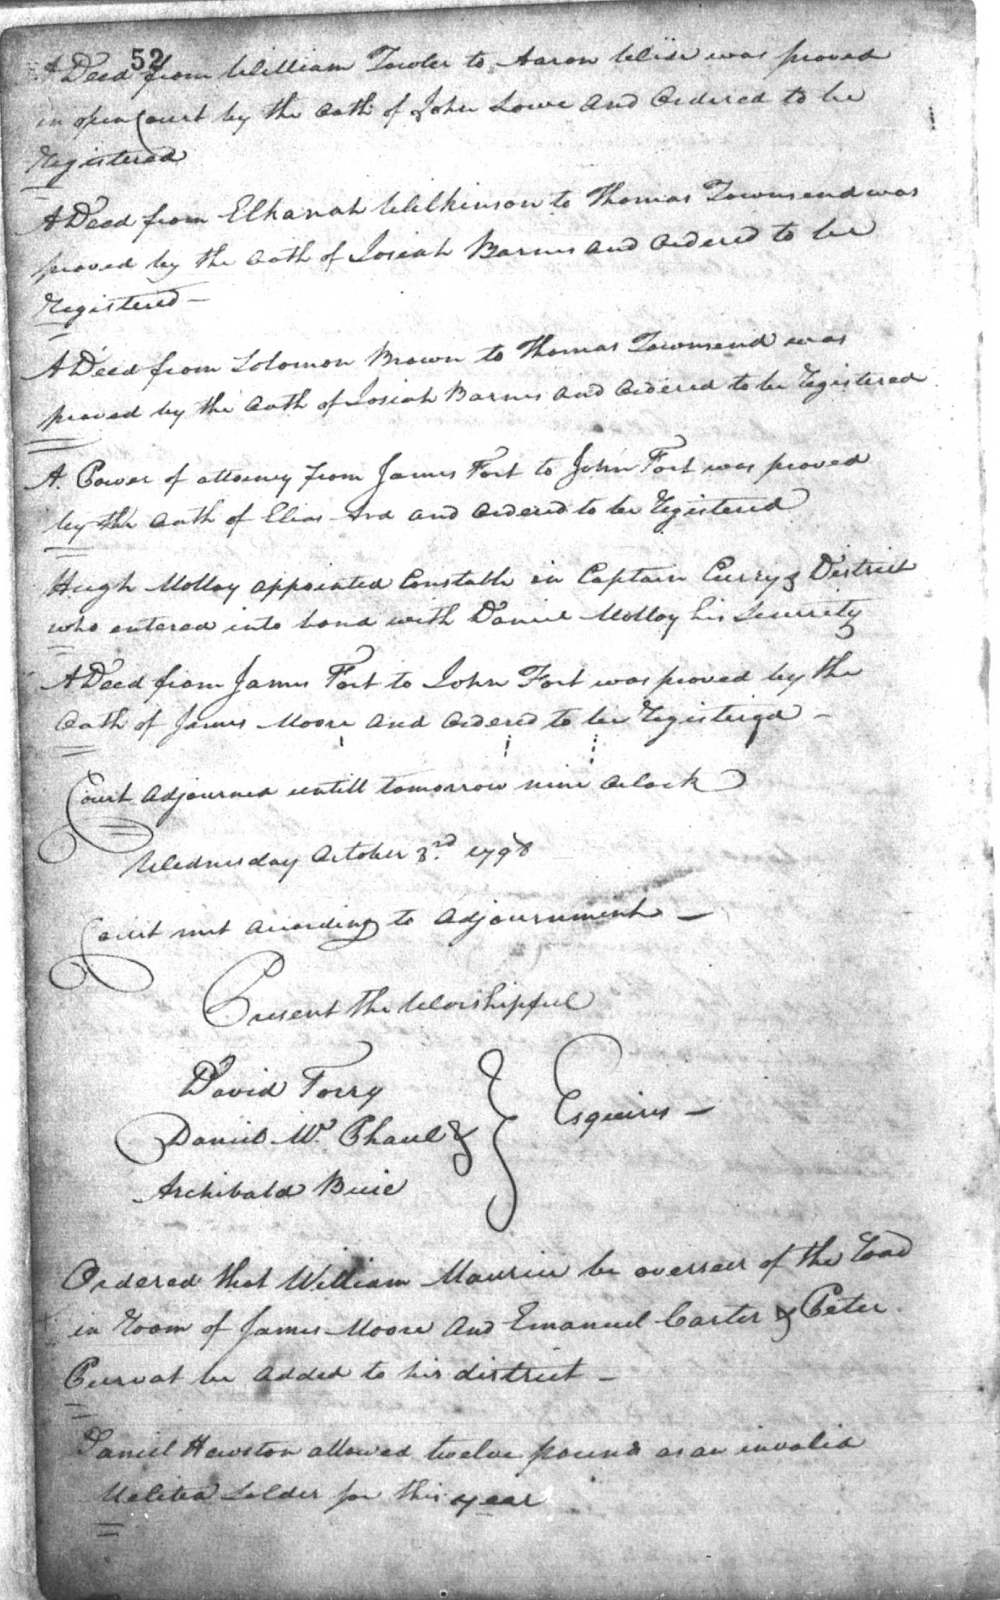 52
A Deed from William Towler to Aaron Wise was proved
in open Court by the Oath of John Lowe and Ordered to be
Registered
A Deed from Elkanah Wilkinson to Thomas Townsend was
proved by the Oath of Josiah Barnes and Ordered to be
Registered —
A Deed from Solomon Brown to Thomas Townsend was
proved by the Oath of Josiah Barnes and Ordered to be Registered
A Power of attorney from James Fort to John Fort was proved
by the Oath of Elias and Ordered to be Registered
Hugh Molloy appointed Constable in Captain Currys District
who entered into bond with Daniel Molloy his Security
A Deed from James Fort to John Fort was proved by the
Oath of James Moore and Ordered to be Registered —
Court Adjourned untill tomorrow nine Oclock
Wednesday October 3rd 1798
Court met According to Adjournment —
Present the Worshipful
David Torry
Daniel Mc Phaul & Esquires —
Archibald Buie
Ordered that William Maurice be overseer of the Road
in Room of James Moore and Emanuel Carter & Peter
Purvat be Added to his district —
Daniel Hewston allowed twelve pound as an invalid
Melitia Solder for this year